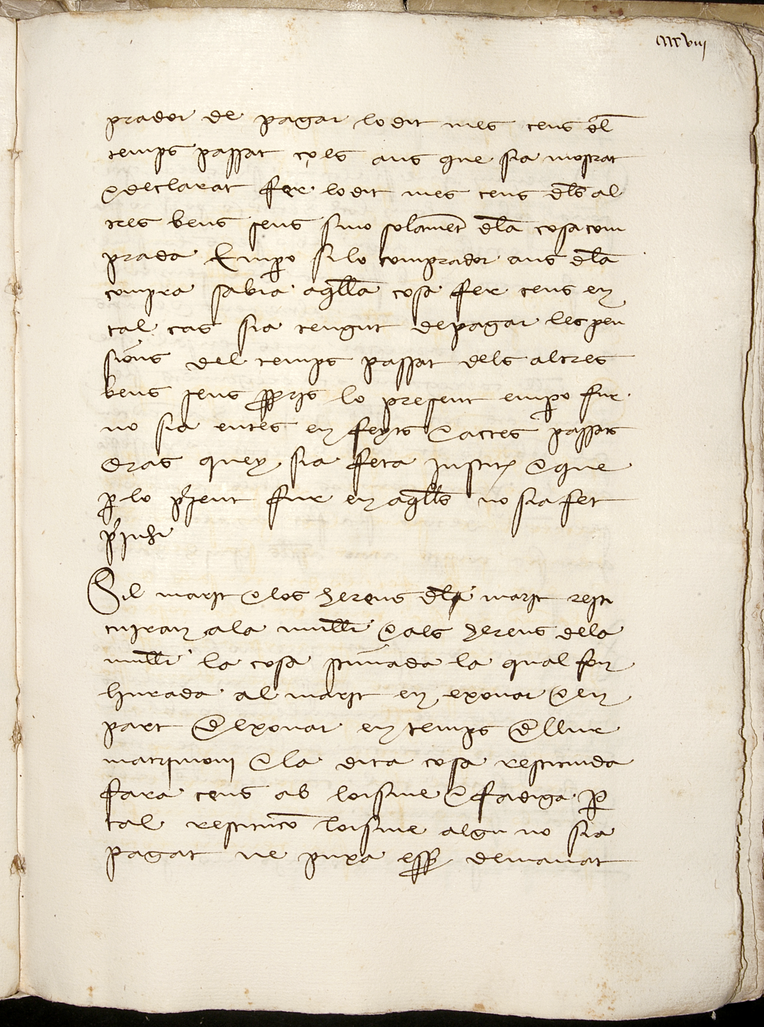 prador de pagar lo dit mes cens dl
temps passat ço es ans que sia mostrat
e declarat fer lo dit mes cens dls al
tres bens sens sino solament dla cosa com
prada Empo si lo comprador ans dla
compra sabia aqlla cosa fer cens en
tal cas sia tengut de pagar les pen
sions del temps passat dels altres
bens sens ppris lo present empo fur
no sia entes en feyts e actes passats
dras quey sia feta justi e que
p lo psent fur en aqlls no sia fet
pjuhi
Sil marit e los hereus dl marit resti
tuiran a la mulli e als hereus dela
mulli la cosa stimada la qual fon
liurada al marit en exouar e en
part d exouar en temps d llur
matrimoni e la dita cosa restituida
fara cens ab loisme e fadiga p
tal restitucio loisme algu no sia
pagat ne puxa esser demanat